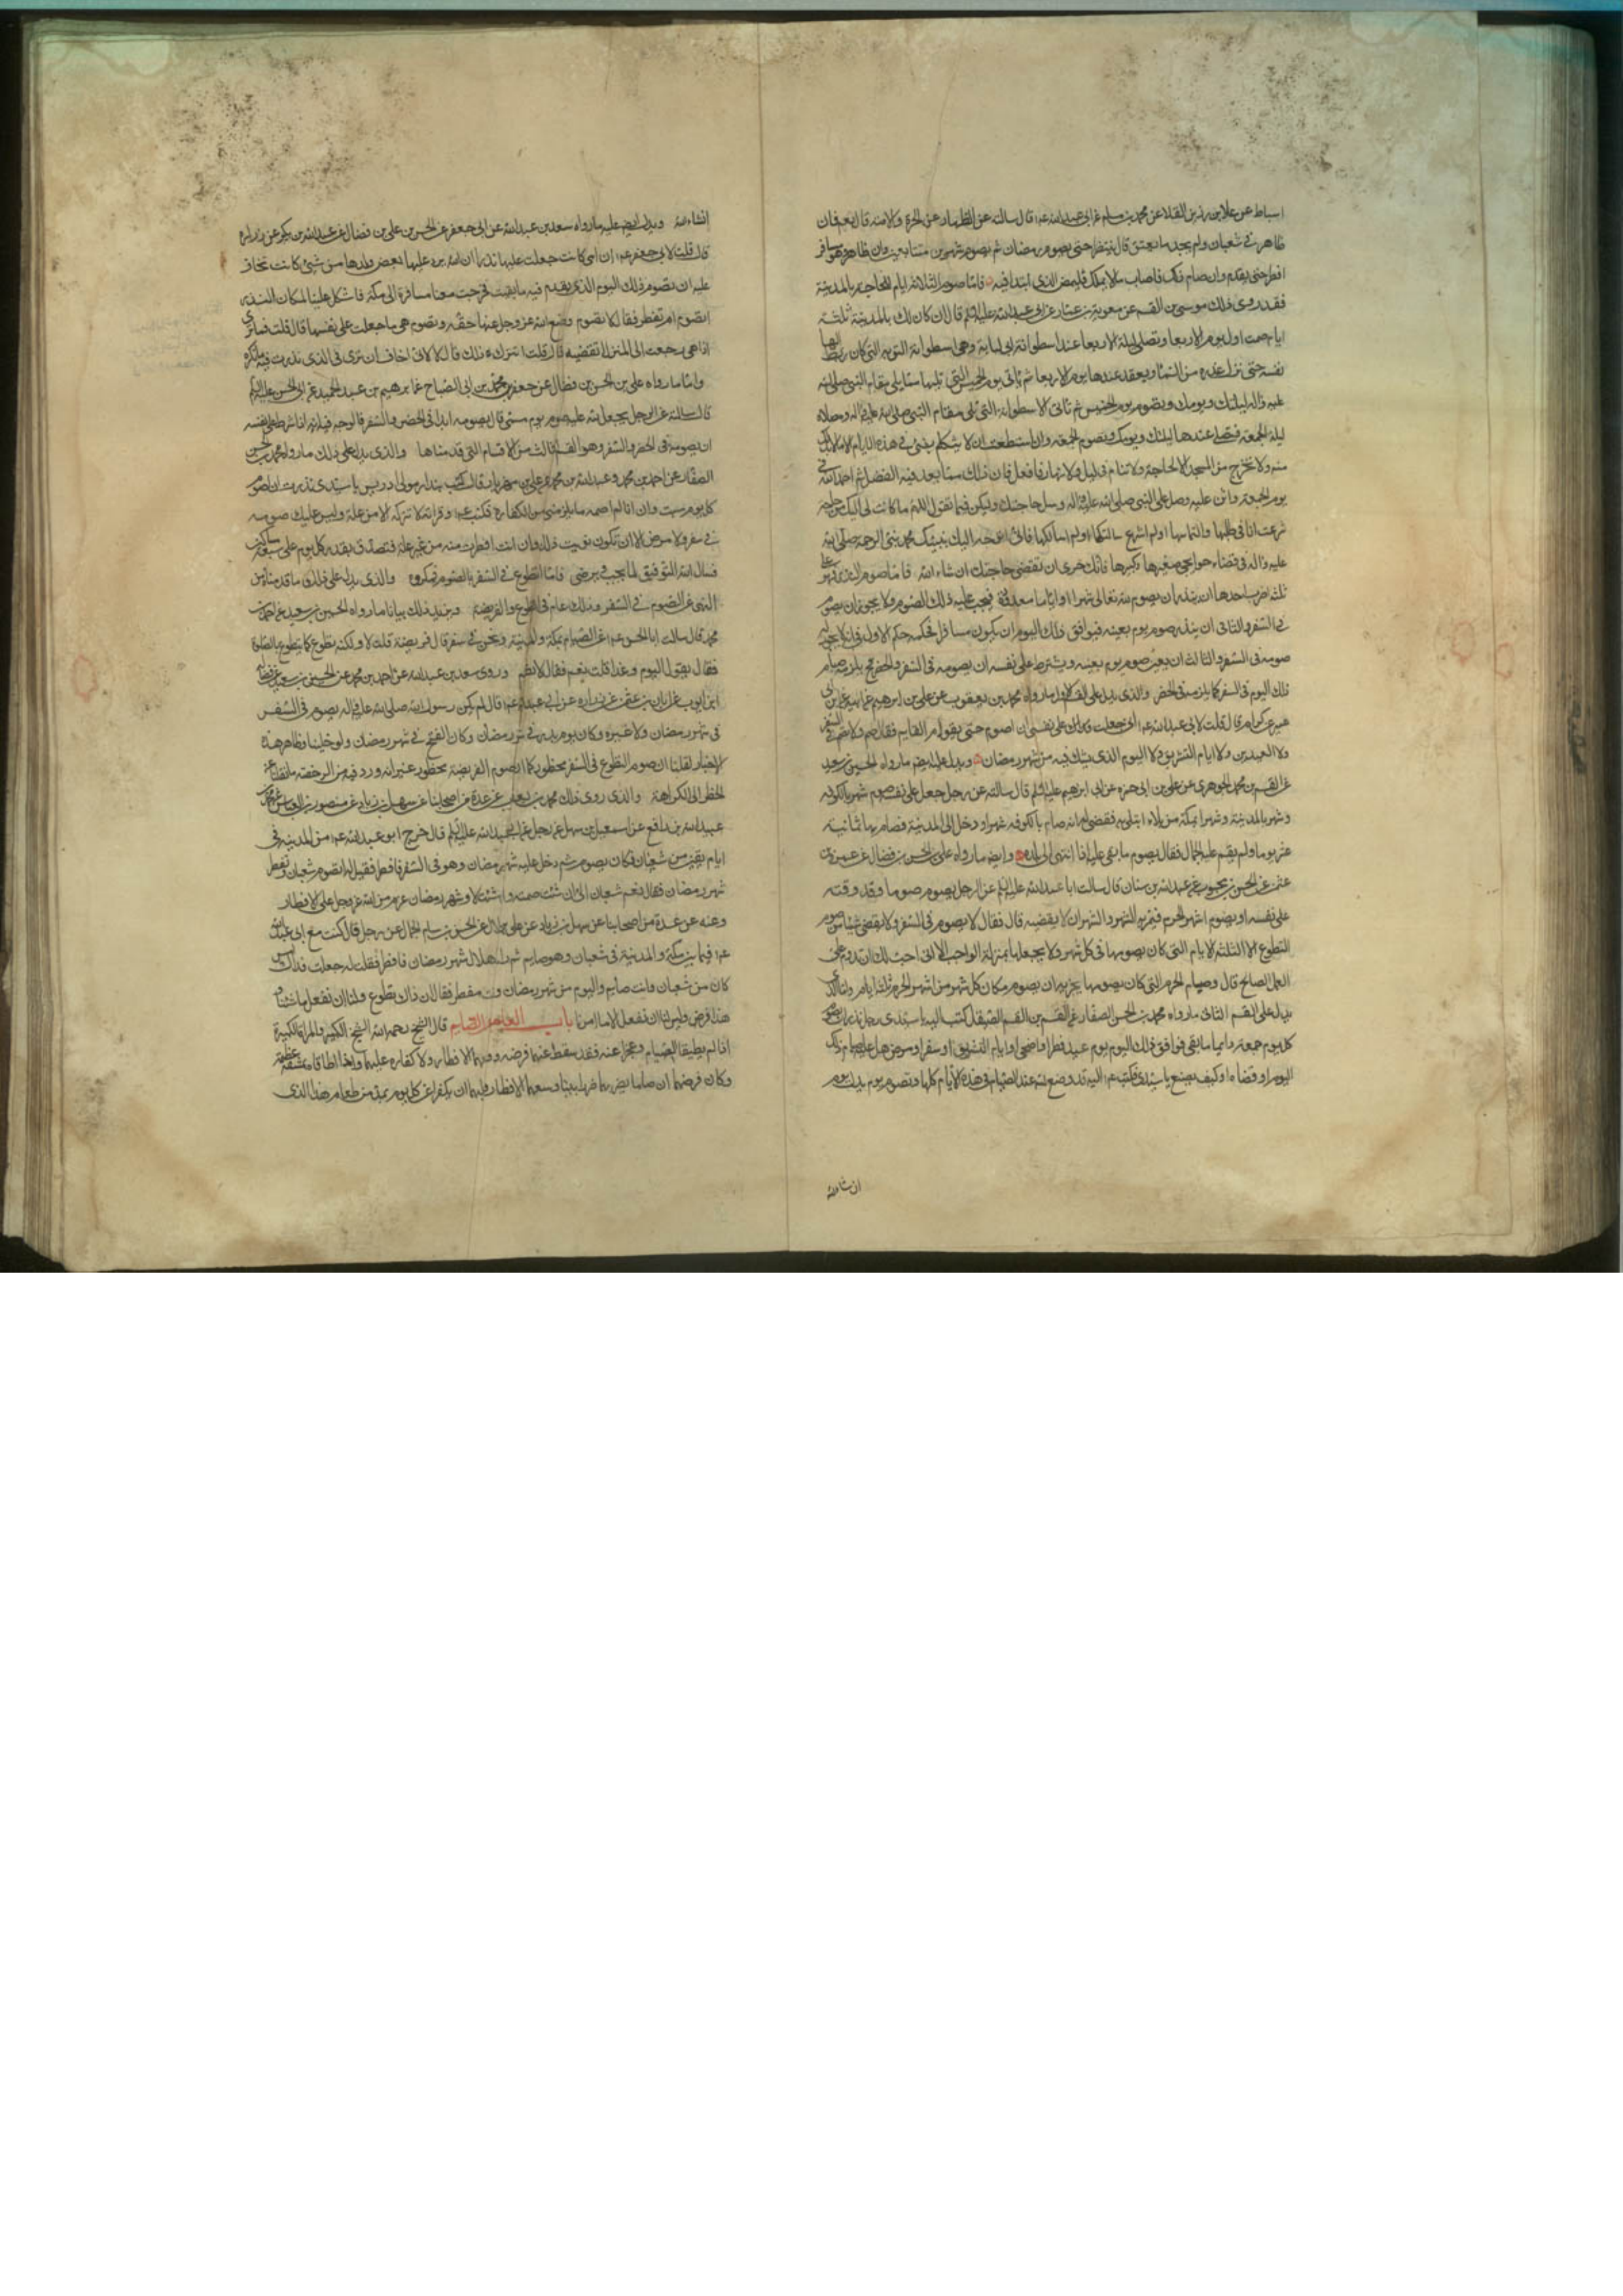 اسباط عن علا بن رزين القلا عن محمد بن مسلم عن ابى عبد الله عم قال سالته عن الظهار عن الحرة والامة قال نعم فان
ظاهر فى شعبان ولم يجد ما يعتق قال ينتظر حتى يصوم رمضان ثم يصوم شهرين متتابعين وان ظاهر وهو مسافر
افطر حتى يقدم وان صام فاصاب مالا يملك فليمض الذى ابتدا فيه فاما صوم الثلاثة ايام للحاجة بالمدينة
فقد روى ذلك موسى بن القسم عن معوية بن عمار عن ابى عبد الله عليه السلم قال ان كان لك بالمدينة ثلثة
ايام صمت اول يوم الاربعا وتصلى ليلة الاربعا عند اسطوانة ابى لبابة وهى اسطوانة التوبة التى كان ربط اليها
نفسه حتى نزل عذره من السماء ويقعد عندها يوم الاربعا ثم تاتى يوم الخميس التى تليها مما يلى مقام النبى صلى الله
عليه واله ليلتك ويومك وتصوم يوم الخميس ثم تاتى الاسطوانة التى تلى مقام النبى صلى الله عليه واله ومصلاه
ليلة الجمعة فتصلى عندها ليلتك ويومك وتصوم الجمعة وان استطعت ان لا تتكلم بشئ فى هذه الايام الا ما لابد لك
منه ولا تخرج من المسجد الا لحاجة ولا تنام فى ليل ولا نهار فافعل فان ذلك مما يعد فيه الفضل ثم احمد الله فى
يوم الجمعة واثن عليه وصل على النبى صلى الله عليه واله وسل حاجتك وليكن فيما تقول اللهم ما كانت لى اليك من حاجة
شرعت انا فى طلبها والتماسها او لم اشرع سالتكها او لم اسالكها فانى اتوجه اليك بنبيك محمد نبى الرحمة صلى الله
عليه واله فى قضاء حوايجى صغيرها وكبيرها فانك حرى ان تقضى حاجتك ان شاء الله فاما صوم النذر فهو على
ثلثة اضرب احدها ان ينذر ان يصوم لله تعالى شهرا او اياما معدودة فيجب عليه ذلك الصوم ولا يجوز ان يصوم
فى السفر والثانى ان ينذر صوم يوم بعينه فيوافق ذلك اليوم ان يكون مسافرا فحكمه حكم الاول فى انه لا يجوز له
صومه فى السفر والثالث ان يعين صوم يوم بعينه ويشترط على نفسه ان يصومه فى السفر والحضر فح يلزمه صيام
ذلك اليوم فى السفر كما يلزمه فى الحضر والذى يدل على القسم الاول ما رواه محمد بن يعقوب عن على بن ابرهيم عن ابيه عن ابن ابى
عمير عن كرام قال قلت لابى عبد الله عم انى جعلت على نفسى ان اصوم حتى يقوم القايم فقال صم ولا تصم فى السفر
ولا العيدين ولا ايام التشريق ولا اليوم الذى يشك فيه من شهر رمضان ويدل عليه ايضا ما رواه الحسين بن سعيد
عن القسم بن محمد الجوهرى عن على بن ابى حمزة عن ابى ابرهيم عليه السلم قال سالته عن رجل جعل على نفسه صوم شهر بالكوفه
وشهر بالمدينة وشهرا بمكة من بلاء ابتلى به فقضى له انه صام بالكوفه شهرا ودخل الى المدينة فصام بها ثمانية
عشر يوما ولم يقم عليه الجمال فقال يصوم ما بقى عليه اذا انتهى الى بلده وايضا ما رواه على بن الحسن بن فضال عن عمرو بن
عثمن عن الحسن بن محبوب عن عبد الله بن سنان قال سالت ابا عبد الله عليه السلم عن الرجل يصوم صوما وقد وقته
على نفسه او يصوم اشهر الحرم فيمر به الشهر والشهران لا يقضيه قال فقال لا يصوم فى السفر ولا يقضى شيئا من صوم
التطوع الا الثلثة الايام التى كان يصومها فى كل شهر ولا يجعلها بمنزلة الواجب الا انى احب لك ان تدوم على
العمل الصالح قال وصيام الحرم التى كان يصومها يجزيه ان يصوم مكان كل شهر من اشهر الحرم ثلثة ايام واما الذى
يدل على القسم الثانى ما رواه محمد بن الحسن الصفار عن القسم بن القسم الصيقل كتب اليه يا سيدى رجل نذر ان يصوم
كل يوم جمعة دائما ما بقى فوافق ذلك اليوم يوم عيد فطر او اضحى او ايام التشريق او سفر او مرض هل عليه صوم ذلك
اليوم او قضاءه او كيف يصنع يا سيدى فكتب عم اليه قد وضع الله عنه الصيام فى هذه الايام كلها وتصوم يوما بدل يوم
ان شاء الله
انشاء الله ويدل ايضا عليه ما رواه سعد بن عبد الله عن ابى جعفر عن الحسن بن على بن فضال عن عبد الله بن بكير عن زرارة
قال قلت لابى جعفر عم ان امى كانت جعلت عليها نذرا ان الله رد عليها بعض ولدها من شئ كانت تخاف
عليه ان تصوم ذلك اليوم الذى يقدم فيه ما بقيت فخرجت معنا مسافرة الى مكة فاشكل علينا لمكان النذر
اتصوم ام تفطر فقال لا تصوم وضع الله عز وجل عنها حقه وتصوم هى ما جعلت على نفسها قال قلت فما ترى
اذا هى رجعت الى المنزل اتقضيه قال لا قلت افتترك ذلك قال لا لانى اخاف ان ترى فى الذى نذرت فيه ما تكره
واما ما رواه على بن الحسن بن فضال عن جعفر بن محمد بن ابى الصباح عن ابرهيم بن عبد الحميد عن ابى الحسن عليه السلم
قال سالته عن الرجل يجعل لله عليه صوم يوم مسمى قال يصومه ابدا فى الحضر والسفر فالوجه فيه انه اذا شرط على نفسه
ان يصومه فى الحضر والسفر وهو القسم الثالث من الاقسام التى قدمناها والذى يدل على ذلك ما رواه محمد بن الحسن
الصفار عن احمد بن محمد وعبد الله بن محمد عن على بن مهزيار قال كتب بندار مولى ادريس يا سيدى نذرت ان اصوم
كل يوم سبت وان انا لم اصمه ما يلزمنى من الكفارة فكتب عم وقراته لا تتركه الا من علة وليس عليك صومه
فى سفر ولا مرض الا ان تكون نويت ذلك وان كنت افطرت منه من غير علة فتصدق بقدر كل يوم على سبعة مساكين
نسال الله التوفيق لما يحب ويرضى فاما التطوع فى السفر بالصوم فمكروه والذى يدل على ذلك ما قدمناه من
النهى عن الصوم فى السفر وذلك عام فى التطوع والفريضة ويزيد ذلك بيانا ما رواه الحسين بن سعيد عن احمد بن
محمد قال سالت ابا الحسن عم عن الصيام بمكة والمدينة ونحن فى سفر قال فريضة قلت لا ولكنه تطوع كما يتطوع بالصلوة
فقال يقول اليوم وغدا قلت نعم فقال لا تصم وروى سعد بن عبد الله عن احمد بن محمد عن الحسين بن سعيد عن فضالة
ابن ايوب عن ابان بن عثمن عن زرارة عن ابى عبد الله عم قال لم يكن رسول الله صلى الله عليه واله يصوم فى السفر
فى شهر رمضان ولا غيره وكان يوم بدر فى شهر رمضان وكان الفتح فى شهر رمضان ولو خلينا وظاهر هذه
الاخبار لقلنا ان صوم التطوع فى السفر محظور كما ان صوم الفريضة محظور غير انه ورد فيه من الرخصة ما نقلنا عن
الحظر الى الكراهة والذى روى ذلك محمد بن يعقوب عن عدة من اصحابنا عن سهل بن زياد عن منصور بن العباس عن محمد بن
عبيد الله بن رافع عن اسمعيل بن سهل عن رجل عن ابى عبد الله عليه السلم قال خرج ابو عبد الله عم من المدينة فى
ايام بقين من شعبان فكان يصوم ثم دخل عليه شهر رمضان وهو فى السفر فافطر فقيل له اتصوم شعبان وتفطر
شهر رمضان فقال نعم شعبان الى ان شئت صمت وان شئت لا وشهر رمضان عزم من الله عز وجل على الافطار
وعنه عن عدة من اصحابنا عن سهل بن زياد عن على بن بلال عن الحسن بن بسام الجمال عن رجل قال كنت مع ابى عبد الله
عم فيما بين مكة والمدينة فى شعبان وهو صايم ثم راينا هلال شهر رمضان فافطر فقلت له جعلت فداك امس
كان من شعبان وانت صايم واليوم من شهر رمضان وانت مفطر فقال ان ذاك تطوع ولنا ان نفعل ما شئنا و
هذا فرض وليس لنا ان نفعل الا ما امرنا باب العاجز عن الصيام قال الشيخ رحمه الله الشيخ الكبير والمراة الكبيرة
اذا لم يطيقا الصيام وعجزا عنه فقد سقط عنهما فرضه ووسعهما الافطار ولا كفارة عليهما واذا اطاقاه بمشقة عظيمة
وكان فرضهما ان صاما يضر بهما ضررا بينا وسعهما الافطار وعليهما ان يكفرا عن كل يوم بمد من طعام وهذا الذى